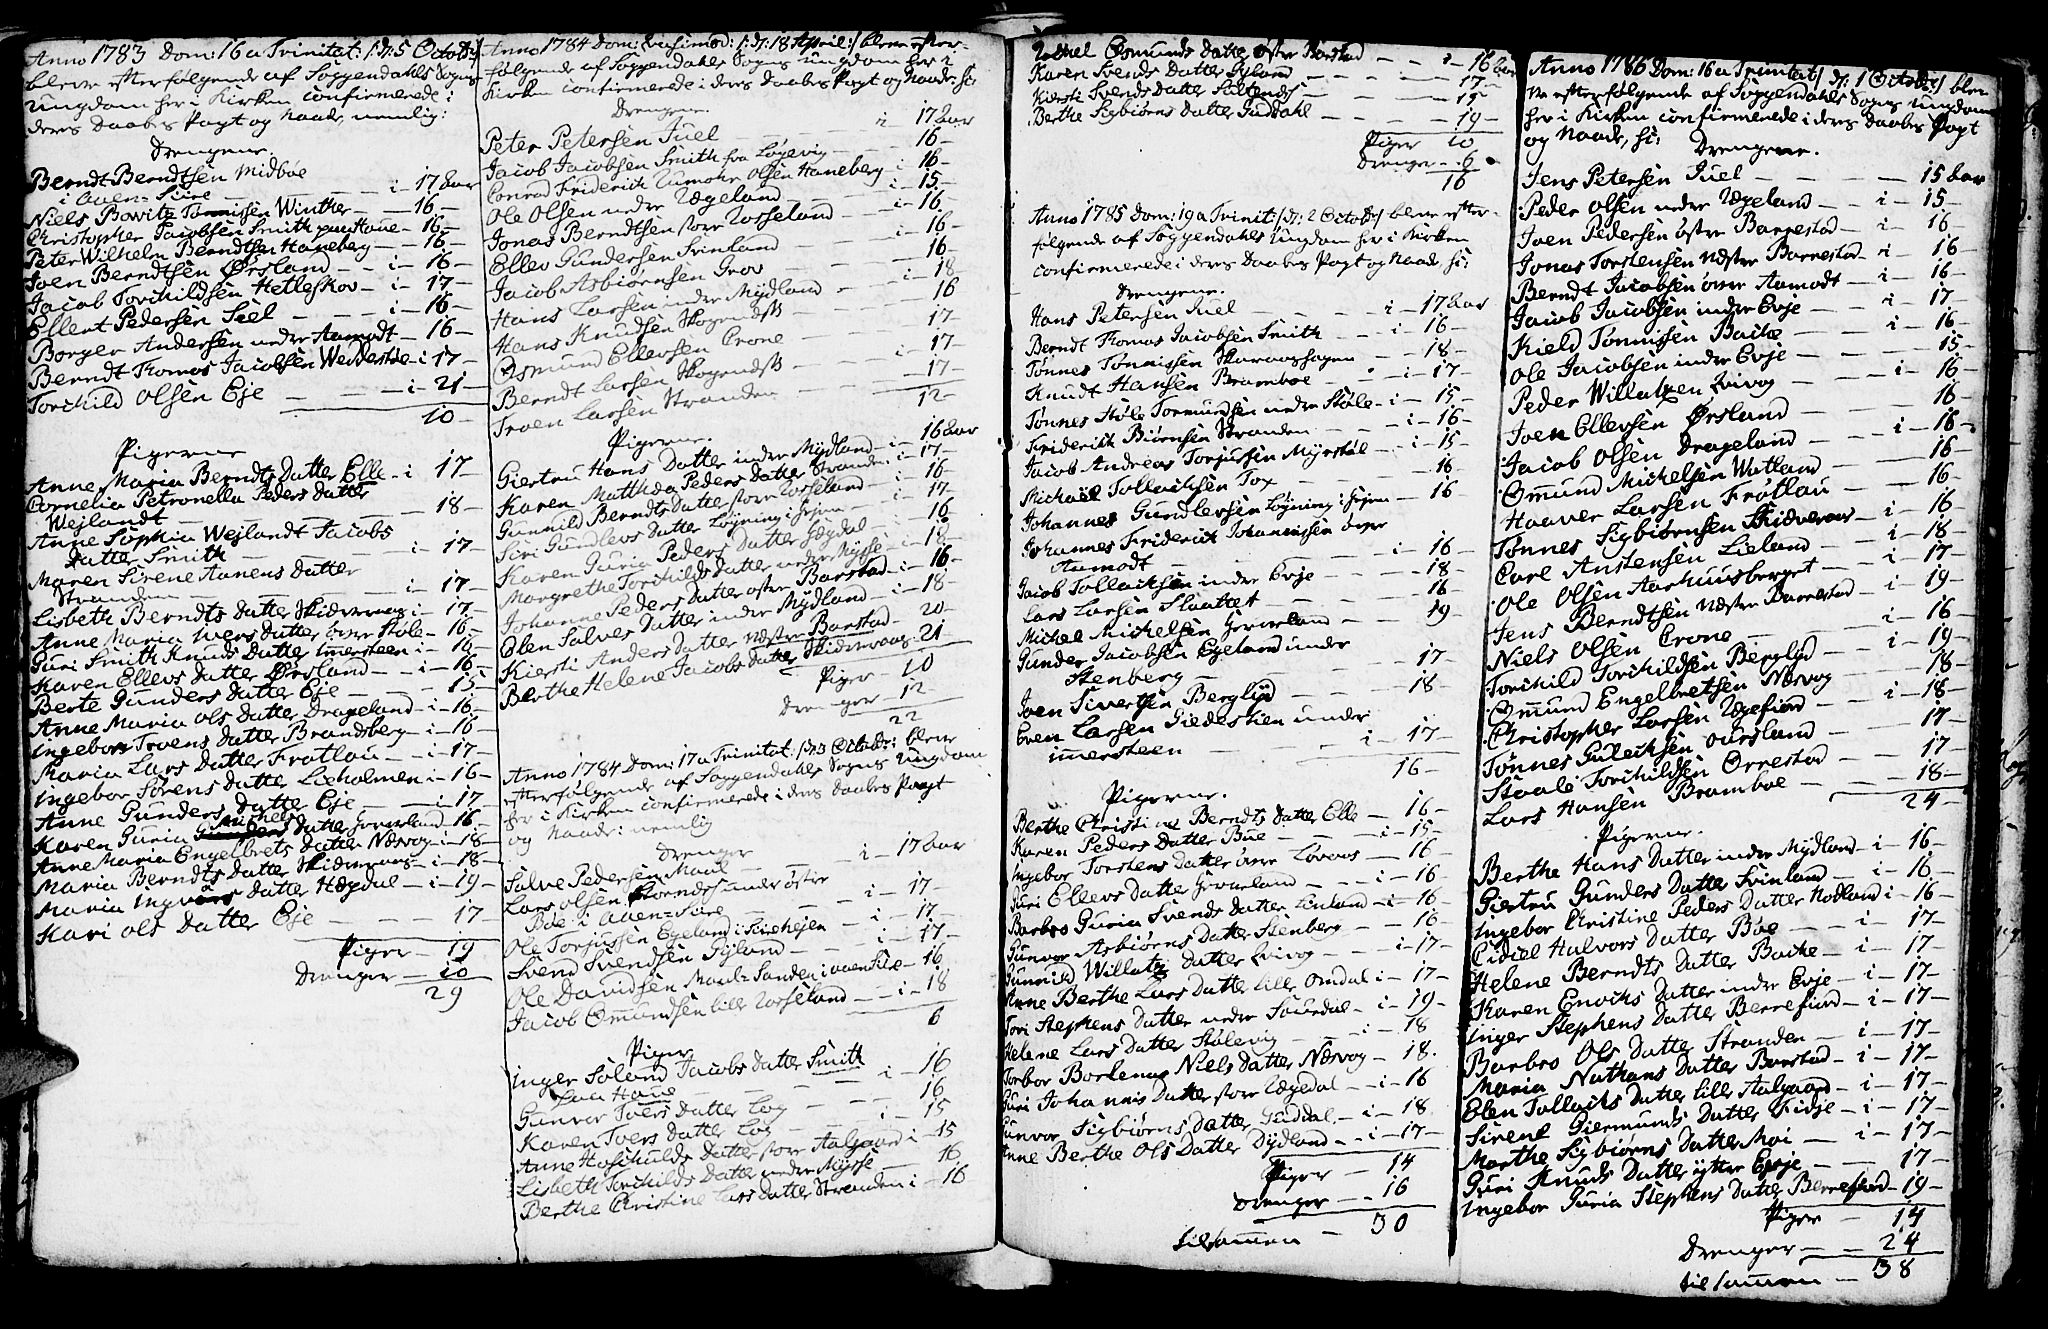 Anno 1783 Dom: 16 a Trinitat: /:d: 5 Octobr:/
bleve efterfølgende af Soggendahls Sogns
Ungdom her i Kirken confirmerede i
deres Daabes Pagt og Naade, nemlig:
Drengene.
Berndt Berndtsen Midbøe
i Aaen-Siire — — i — 17 Aar
Niels Bowitz Tønnisen Winther — 16 —
Christopher Jacobsen Smith paa Haue — 16 —
Peter Wilhelm Berndtsen Haneberg — 16 —
Joen Berndtsen Ørsland — — i — 16 —
Jacob Torchildsen Hetleskov — i — 17 —
Ellert Pedersen Siel — — — i — 16 —
Borger Andersen nedre Aamodt — 16 —
Berndt Thomas Jacobsen — i 17 —
Torchild Olsen Eje — — i — 21 —
10 —
Pigerne
Anne Maria Berndts Datter Elle — i 17 —
Cornelia Petronella Peders Datter
Wejlandt — — — — 18 —
Anne Sophia Wejlandt Jacobs
Datter Smith — — i — 17 —
Maren Sirene Aanens Datter
Stranden — — — i — 17 —
Lisbeth Berndts Datter Skidveraas i — 17 —
Anne Maria Ivers Datter øvre Støle — 16 —
Guri Smith Knuds Datter Immersteen — i — 16 —
Karen Ellevs Datter Ørsland — — i — 16 —
Berte Gunders Datter Eje — — 15 —
Anne Maria Ols Datter Drageland — i — 16 —
Ingebor Troens Datter Brandsberg — i — 16 —
Maria Lars Datter Frøtlau — — i — 17 —
Ingebor Sørens Datter Lieholmen — i — 16 —
Anne Gunders Datter Eje — — i — 17
Michels
Karen Guria Datter Gverland — 16 —
Anne Maria Engelbrets Datter Nærvog — i — 18 —
Maria Berndts Datter Skidveraas — i — 18 —
Maria Ingvars Datter Hægdal — i — 19 —
Kari Ols Datter Eje — — — 17
Piger — 19
Drenger — 10
29
Anno 1784 Dom: Qvasimod: /:d: 18 April:/ bleve efter-
følgende af Soggendahls Sogns Ungdom her i
Kirken confirmerede i deres Daabes Pagt og Naade, si:
Drengene.
Peter Petersen Juel — — i 17 Aar
Jacob Jacobsen Smith fra Løgevig — 16 —
Conrad Friderich Rumohr Olsen Haneberg i — 16 —
Ole Olsen nedre Ægeland — — i — 15 —
Jonas Berndtsen store Rosseland — i — 16
Ellev Gundersen Svinland — — i — 16 —
Jacob Asbiørnsen Grov — — 16 —
Hans Larsen indre Mydland — — i — 18
Hans Knudsen Skogendsk — — 16
Osmund Ellevsen Crone — — 17 —
Berndt Larsen Skogendsk — — i — 17 —
Troen Larsen Stranden — — 17 —
12 —
Pigerne.
Giertru Hans Datter indre Mydland — i — 16 Aar
Karen Matthda Peders Datter Stranden i — 17 —
Gunnild Berndts Datter store Rosseland — — 16 —
Siri Gundlevs Datter Løgning i hejen — i — 17 —
Karen Guria Peders Datter Hægdal — — 16 —
Margrethe Torchilds Datter nedre Mysse — i — 18 —
Johanne Peders Datter øster Barstad — i — 16 —
Elen Salves Datter indre Mydland — i — 18
Kiersti Anders Datter Næster Barstad — 20 —
Berthe Helene Jacobs Datter Skidveraas — 21 —
Piger — 10
Drenger — 12 —
22
Anno 1784 Dom: 17 a Trinitat: /:d: 3 Octobr: bleve
efterfølgende af Soggendahls Sogns Ungdom
her i Kirken confirmerede i deres Daabes Pagt
og Naade: nemlig
Drenger
Salve Pedersen Maal — — i — 17 Aar
Lars Olsen under øster
Bøe i Aaen-Siire — — i — 17 —
Ole Torjussen Egeland i Sirehejen — i — 17 —
Svend Svendsen Gyland — — i — 17 —
Ole Davidsen Maal-Sanden i Aaen Siire — 16
Jacob Omundsen lille Rosseland — — i — 18
6
Piger
Inger Søland Jacobs Datter Smith
Haue — — i — 16
Gunvor Tvers Datter Log — — 16
Karen Tvers Datter Log — — i — 15
Anne Hoschulds Datter store Aalgaard i — 15
Lisbeth Torchilds Datter nedre Mysse — 16
Berthe Christine Lars Datter Stranden i — 16
Rachel Osmunds Datter øster Barstad — — i — 16 Aar
Karen Svends Datter Gyland — — — 17 —
Kiersti Svends Datter — — — 15 —
Berthe Sigbiørns Datter Guddahl — — — 19 —
Piger 10
Drenger — 6
16
Anno 1785 Dom: 19 a Trinit: /:d: 2 Octobr:/ bleve efter-
følgende af Soggendahls Ungdom her i Kirken
confirmerede i deres Daabes Pagt og Naade, si:
Drengene.
Hans Petersen Juel — — — i — 17 Aar
Berndt Thomas Jacobsen Smith — — i — 16 —
Tønnes Tønnissen Skaraashagen — — 18 —
Knudt Hansen Bramboe — — i — 17 —
Tønnes Støle Tormundsen nedre Støle — i — 15 —
Friderich Biørnsen Stranden — — — i — 16 —
Jacob Andreas Torjussen Myrstøl — — i — 15
Michaël Tollachsen Tox — — — 16 —
Johannes Gundlevsen Løgning i hejen — 16
Johannes Friderich Johannissen øvre
Aamodt — — — i — 16 —
Jacob Tollachsen indre Evje — — — 18 —
Lars Larsen Slaattet — — — 16
Michel Michelsen Gverland — — 19 —
Gunder Jacobsen Egeland under
Stenberg — — — — 17 —
Joen Sivertsen Berglyd — — 18
Even Larsen Giedestien under
immersteen — — i — 17 —
16 —
Pigerne.
Berthe Christine Berndts Datter Elle — 16 —
Karen Peders Datter Bue — — i — 15 —
Ingebor Torstens Datter øvre Løvaas — 16 —
Siri Ellevs Datter Gverland — — i — 16 —
Barbro Guria Svends Datter Linland — i — 16 —
Gunvor Asbiørns Datter Stenberg — — 16 —
Gunnild Willatz Datter Qvivog — — i — 17 —
Anne Berthe Lars Datter lille Omdal i — 17 —
Tori Stephens Datter nedre Sauedal — i — 19 —
Helene Lars Datter Stølevig — — i — 18
Torbor Borlenas Niels Datter Nærvog — 18.
Guri Johannis Datter store Ægedal — i — 16
Gunvor Sigbiørns Datter Guddal — i — 18.
Anne Berthe Ols Datter Dydland — i — 17 —
Piger — 14
Drenger — 16
tilsammen — 30
Anno 1786 Dom: 16 a Trinitat: /:d: 1 Octobr:/ ble-
ve efterfølgende af Soggendahls Sogns Ungdom
her i Kirken confirmerede i deres Daabes Pagt
og Naade, si: Drengene.
Jens Petersen Juel — — — 15 Aar
Peder Olsen nedre Ægeland — — i — 15 —
Joen Pedersen østre Barrestad — i — 16 —
Jonas Torstensen Næster Barrestad — i — 16
Berndt Jacobsen øvre Aamodt — i — 16 —
Jacob Jacobsen indre Evje — — i — 17 —
Kield Tønnissen Bache — — i — 16 —
Ole Jacobsen indre Evje — — — 15 —
Peder Willatzen Qvivog — — i — 16 —
Joen Ellevsen Ørsland — — — 16 —
Jacob Olsen Drageland — — i — 16 —
Omund Michelsen Watland — — 16 —
Haaver Larsen Frøtlau — — 16 —
Tønnes Sigbiørnsen Skidveraas — i — 16
Carl Anstensen Lieland — — i — 18
Ole Olsen Aarhuusberget — — i — 17
Jens Berndtsen Næstre Barrestad — i — 19 —
Niels Olsen Crone — — — i — 16
Torchild Torchildsen Berglyd — i — 19 —
Omund Engelbretsen Nærvog — 18 —
Christopher Larsen Ægefiord — i — 18 —
Tønnes Gulachsen Oursland — — 17
Staale Torchildsen Orrestad — — 17 —
Lars Hansen Bramboe — — 18 —
24 —
Pigerne.
Berthe Hans Datter indre Mydland — i — 16 —
Giertru Gunders Datter Svinland — i — 16 —
Ingebor Christine Peders Datter Rodland i — 16
Cidsel Halvors Datter Bøe — — i — 17 —
Helene Berndts Datter Bache — i — 17 —
Karen Enochs Datter indre Evje — i — 17 —
Inger Stephens Datter Berrefiord — i — 17 —
Barbro Ols Datter Stranden — i — 17 —
Maria Nathans Datter Barstad — i — 17 —
Elen Tollachs Datter lille Aalgaard — i — 17 —
Sirene Giermunds Datter Fidje — i — 17 —
Marthe Sigbiørns Datter Moi — i — 17 —
Guri Knuds Datter ytter Evje — — 17 —
Ingebor Guria Stephens Datter Berrefiord — 19 —
Piger — 14
Drenger — 24
tilsammen — 38